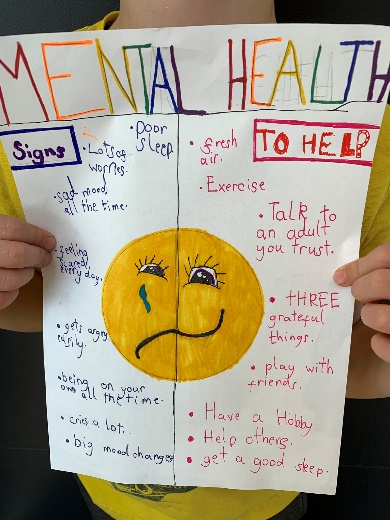 MENTAL HEALTH
Signs
• Lots of
worries.
• Poor
sleep
• sad mood
all the time.
• feeling
scared
every day.
• gets angry
easily.
• being on your
own all the time.
• cries a lot.
• big mood changes
TO HELP
• fresh
air.
• Exercise
• Talk to
an adult
you trust.
• tHREE
grateful
things.
• play with
friends.
• Have a Hobby
• Help others.
• get a good sleep.